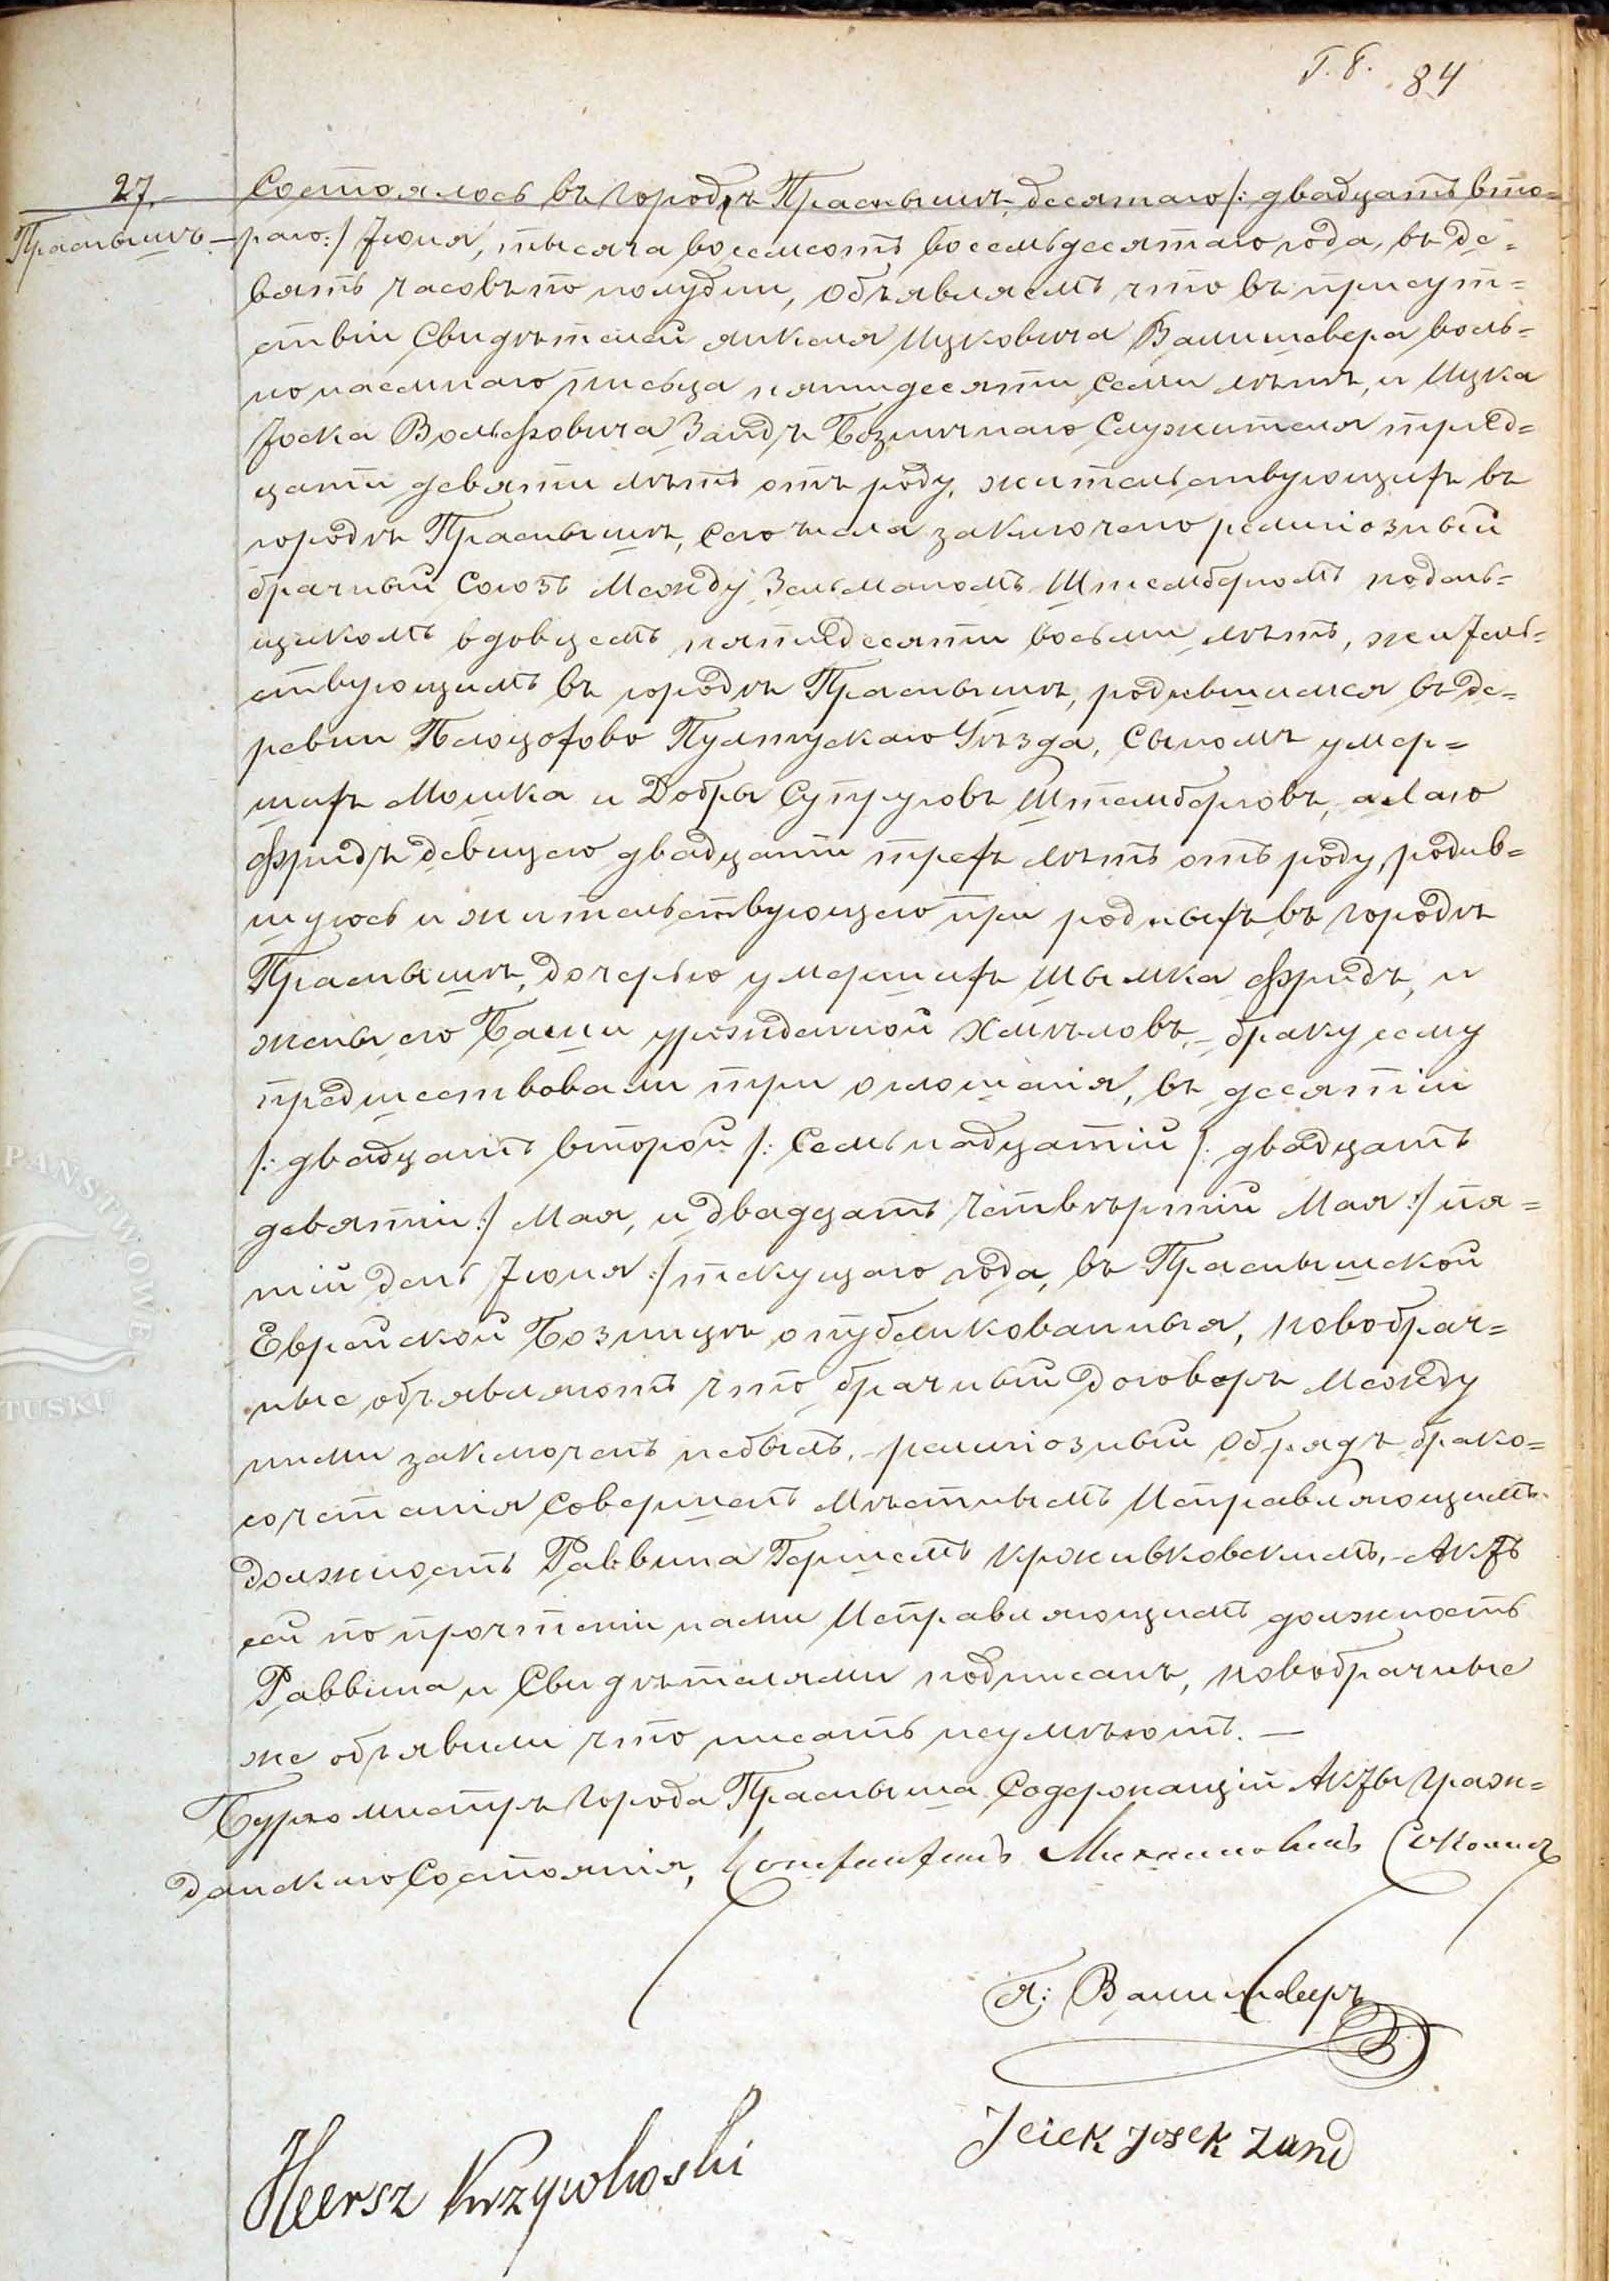 Г. Б. 84
27.
Праснышъ. —
Состоялось въ городѣ Праснышѣ, десятаго /: двадцать вто=
раго :/ Iюня, тысяча восемсотъ восемьдесятаго года, въ де=
вять часовъ по полудни, объявляемъ что въ присут=
ствіи Свидѣтелей Янкеля Ицковича Валишевера воль=
но наемнаго писца пятидесяти семи лѣтъ, и Ицка
Iоска Вольфовича Зандъ Бозничнаго Служителя трид=
цати девяти лѣтъ отъ роду, жительствующихъ въ
городѣ Праснышѣ, сего числа заключено религіозный
брачный Союзъ Между Зельманомъ Штемберомъ подень=
щикомъ вдовцемъ пятидесяти восьми лѣтъ, житель=
ствующимъ въ городѣ Праснышѣ, родившимся въ де=
ревни Пултускаго Уѣзда, Сыномъ умер=
шихъ Мошка и Добры Супруговъ Штемберговъ, а Лаю
Фридъ девицею двадцати трехъ лѣтъ отъ роду, родив=
шуюсь и жительствующею при родныхъ въ городѣ
Праснышѣ, дочерью умершихъ Шымка Фридъ, и
жены его Баши урожденной Хмѣловъ, — браку сему
предшествовали три оглошанія, въ десятіи
/: двадцать второй :/ Семьнадцатіи /: двадцать
девятіи :/ Мая, и двадцать Четвѣртіи Мая :/ пя=
тіи день Iюня :/ текущаго года, въ Праснышской
Еврейской Бозницѣ опубликованныя, новобрач=
ные объявляютъ что брачный договоръ Между
ними заключенъ небылъ, — религіозный Обрядъ брако=
сочетанія Совершенъ Мѣстнымъ Исправляющимъ
должность Раввина Гершемъ Крживковскимъ, — Актъ
сей по прочтеніи нами Исправляющимъ должность
Раввина и Свидѣтелями подписанъ, новобрачные
же объявили что писать неумѣютъ. —
Бургомистръ Города Прасныша Содержащій Акты Граж=
данскаго Состоянія,
Я: Валишеверъ
Icick Josek Zand
Heersz Krzywkoski
PAŃSTWOWE
TUSKU